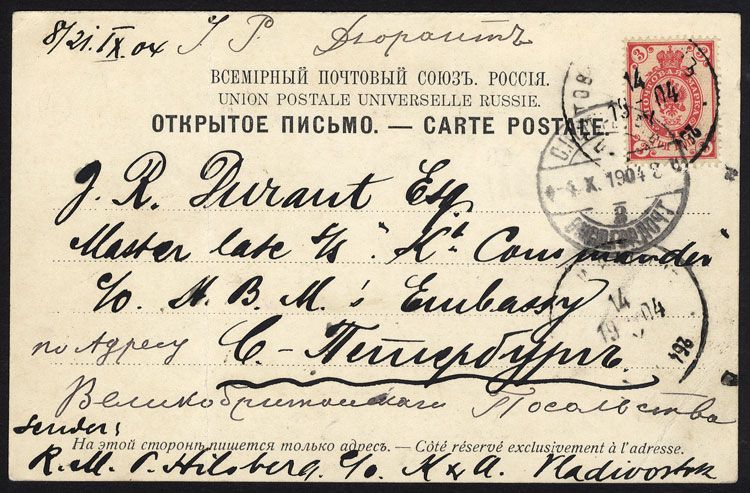 8/21.IX.04 J R Дюрантъ
ВСЕМІРНЫЙ ПОЧТОВЫЙ СОЮЗЪ. РОССІЯ.
UNION POSTALE UNIVERSELLE RUSSIE.
ОТКРЫТОЕ ПИСЬМО. — CARTE POSTALE.
3 3
ПОЧТОВАЯ МАРКА
14
19 04
264
4.X.1904
J. R. Durant Esq.
Master late S/S "Kt Commander"
C/o H. B. M.'s Embassy
по Адресу С-Петербургъ.
14
19 04
264
Великобританскаго Посольства
Sender:
На этой сторонѣ пишется только адресъ. — Côté réservé exclusivement à l'adresse.
R. M. P. Hilsberg. C/o K & A. Vladivostok